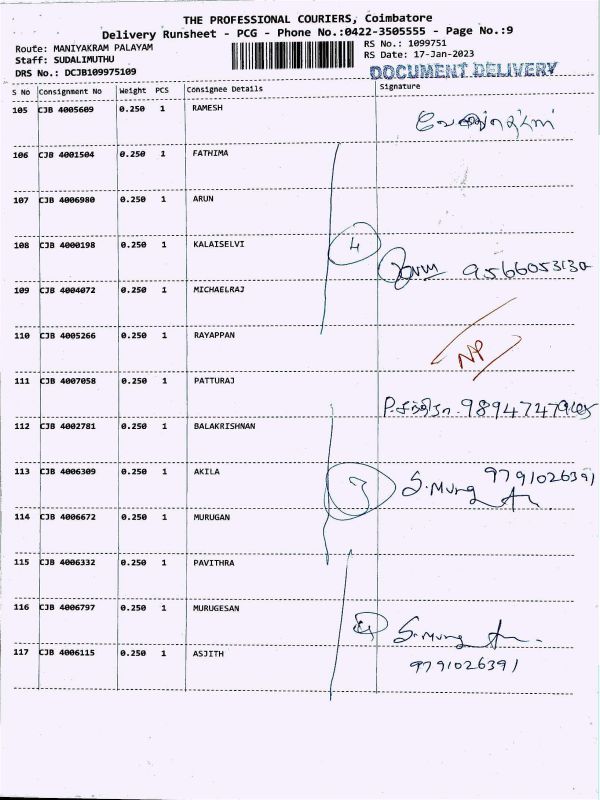 THE PROFESSIONAL COURIERS, Coimbatore
Delivery Runsheet - PCG - Phone No.:0422-3505555 - Page No.:9
Route: MANIYAKRAM PALAYAM
RS No.: 1099751
Staff: SUDALIMUTHU
RS Date: 17-Jan-2023
DRS No.: DCJB109975109
DOCUMENT DELIVERY
S No Consignment No Weight PCS Consignee Details Signature
105 CJB 4005609 0.250 1 RAMESH
106 CJB 4001504 0.250 1 FATHIMA
107 CJB 4006980 0.250 1 ARUN
108 CJB 4000198 0.250 1 KALAISELVI 4
9566053130
109 CJB 4004072 0.250 1 MICHAELRAJ
110 CJB 4005266 0.250 1 RAYAPPAN
NP
111 CJB 4007058 0.250 1 PATTURAJ
112 CJB 4002781 0.250 1 BALAKRISHNAN
113 CJB 4006309 0.250 1 AKILA 3 S.Murug 9791026391
114 CJB 4006672 0.250 1 MURUGAN
115 CJB 4006332 0.250 1 PAVITHRA
116 CJB 4006797 0.250 1 MURUGESAN
4 S.Murug
117 CJB 4006115 0.250 1 ASJITH 9791026391